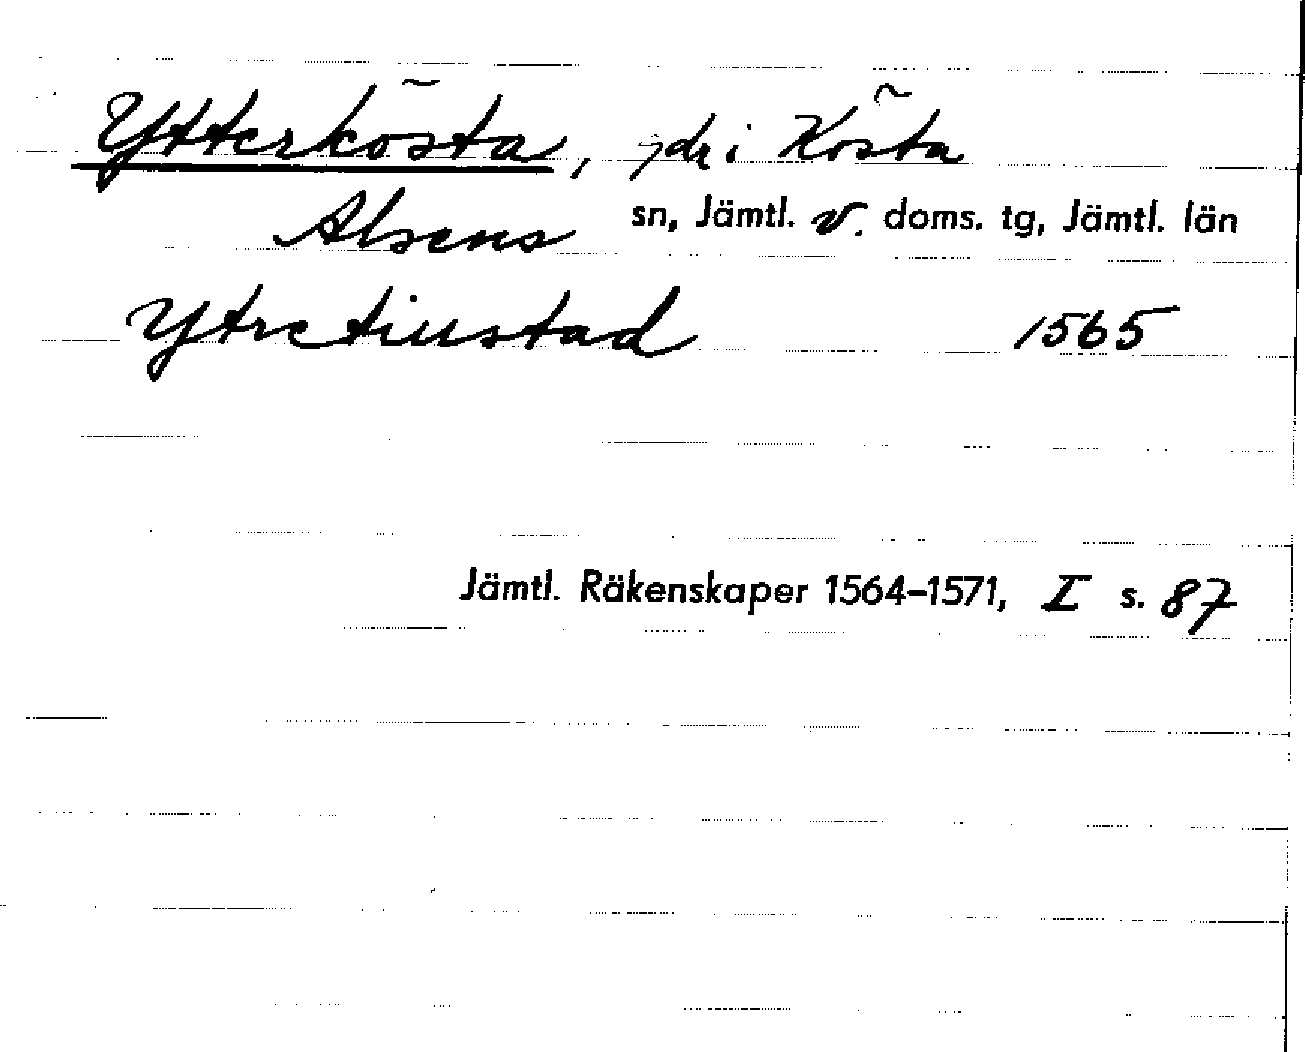 Ytterkösta, gd i Kösta
Alsens sn, Jämtl. v. doms. tg, Jämtl. län
Ytre tiustad 1565
Jämtl. Räkenskaper 1564-1571, I s. 87